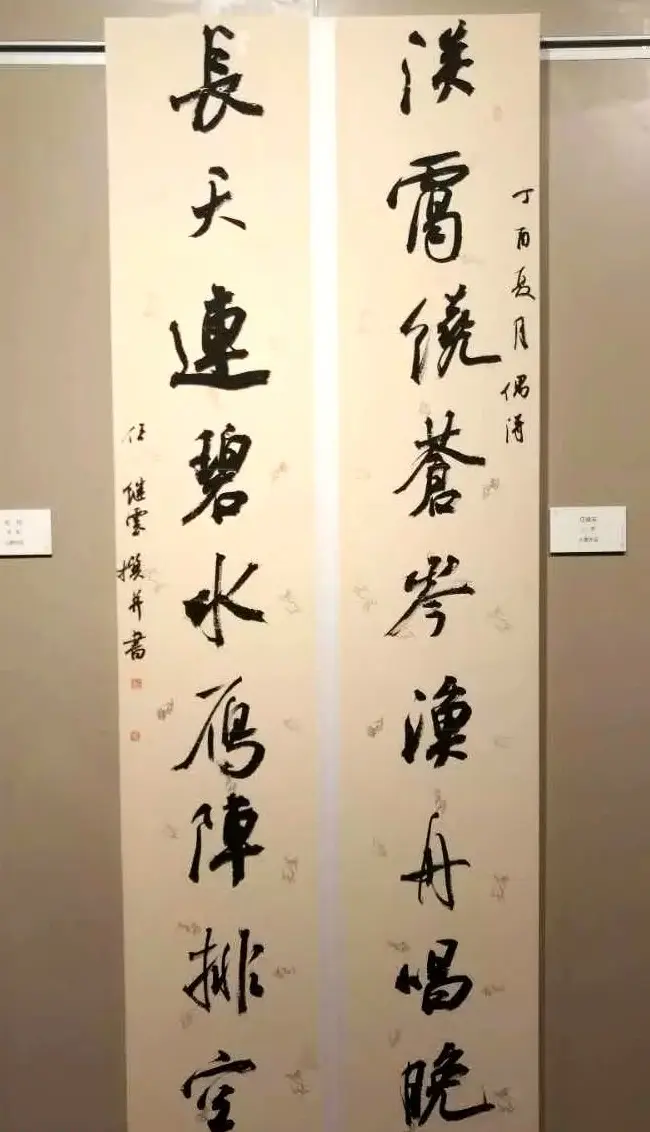 淡靄繞蒼岑漁舟唱晚
丁酉夏月偶得
長天連碧水雁陣排空
任继雲撰并書